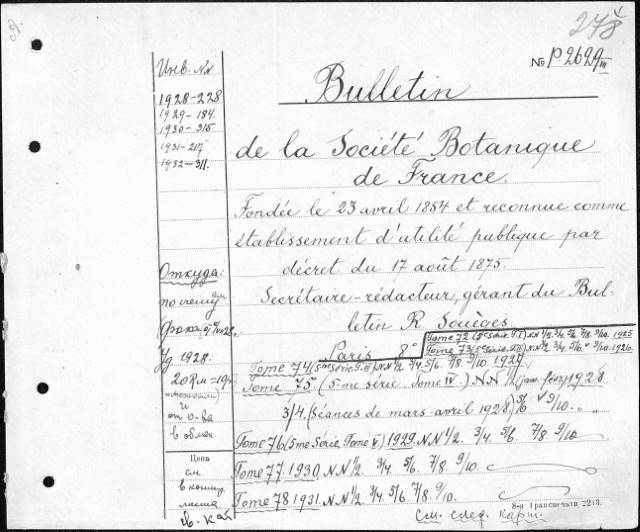 278
№ P 2629/III
Инв. NN
1928-228
1929-184.
1930-315
1931-217
1932-311.
Откуда:
по
Bulletin
de la Société Botanique
de France.
Fondée le 23 avril 1854 et reconnue comme
établissement d'utilité publique par
décret du 17 août 1875.
Secrétaire-rédacteur, gérant du Bul-
letin R. Souèges.
Paris 8°
Tome 72 (5e Série T.I) NN 1/2 3/4 5/6 7/8 9/10 1925
Tome 73 (5e Série T.II) NN 1/2 3/4 5/6 7/8 9/10 1926.
Tome 74 (5me Série T.III) NN 1/2 3/4 5/6 7/8 9/10 1927
Tome 75 (5-me série Tome IV) NN 1/2 (jan. févr) 1928
3/4 (séances de mars-avril 1928) 5/6 v 9/10. „ „
Tome 76 (5me Série, Tome V) 1929. NN 1/2. 3/4. 5/6. 7/8. 9/10
Tome 77. 1930. NN 1/2 3/4 5/6. 7/8 9/10
Tome 78 1931. NN 1/2 3/4. 5/6. 7/8. 9/10.
1928.
и
от о-ва
в обмен.
Цена
см
в конц.
листа
8-я Гравспечати 2213.
См. след. карт.